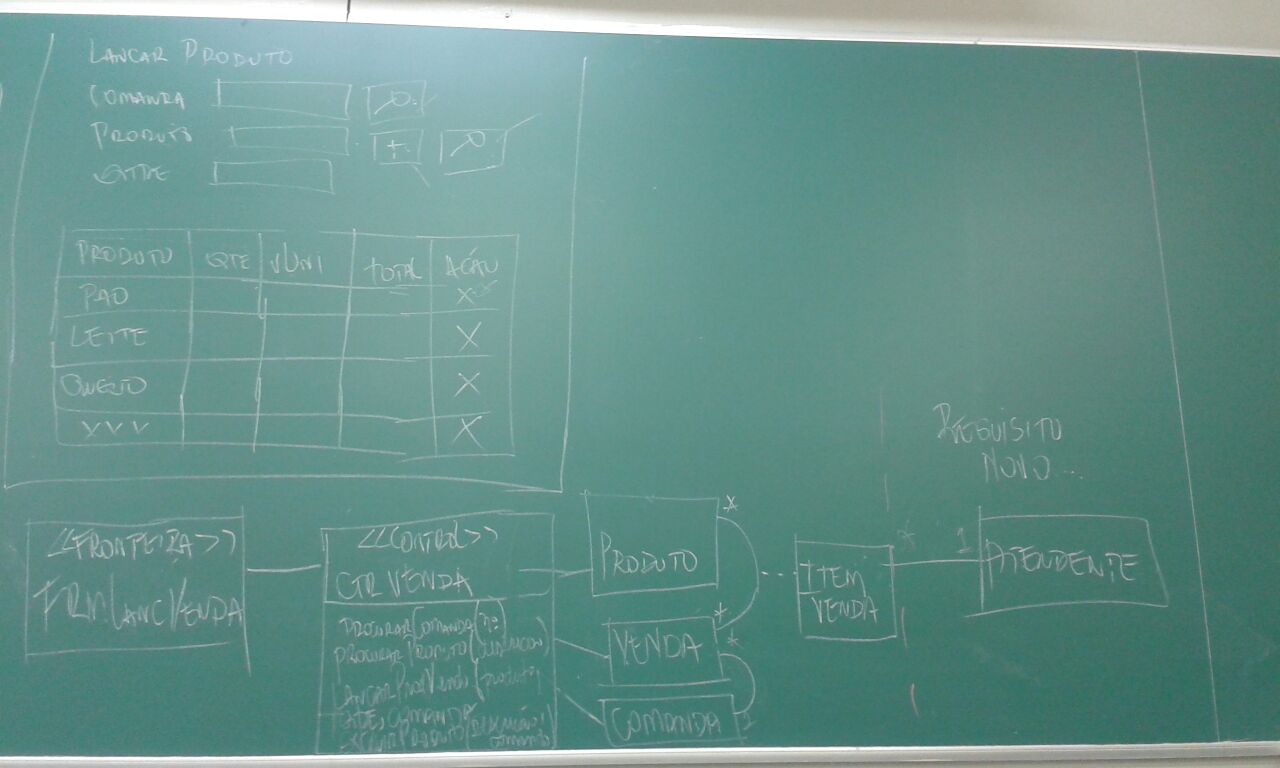 LANCAR PRODUTO
COMANDA
PRODUTO
+
QTDE
PRODUTO QTE VUNI TOTAL ACÃO
PAO X
LEITE X
QUEIJO X
YYY X
REQUISITO
NOVO...
<<FRONTEIRA>>
FRMLANCVENDA
<<CONTROL>>
CTR VENDA
PROCURARCOMANDA(nº)
PROCURARPRODUTO
LANCARPRODVENDA(PRODUTO,
QTDE, COMANDA
PRODUTO *
VENDA * *
COMANDA
...
ITEM
VENDA
* 1
ATENDENTE